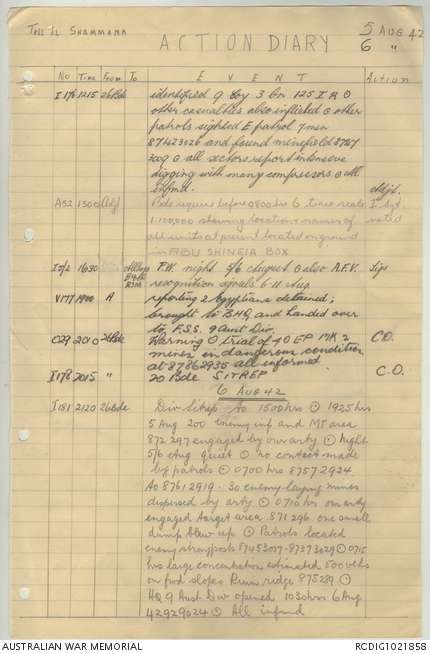 Tell el Shammama
5 AUG 42
ACTION DIARY
6 "
No Time From To EVENT Action
I 176 1215 26 Bde identified 9 Coy 3 bn 125 I R ⊙
other casualties also inflicted ⊙ other
patrols sighted E patrol 7 men
87423026 and found minefield 8787
3009 ⊙ all sectors report intensive
digging with many compressors ⊙ all
infmd. Adjt.
A52 1300 Adjt Bde require before 0800 hrs 6 trace scale I Sgt
1:100,000 showing location & names of noted
all units at present located on ground
in ABU SHINEIA BOX
1630 All Coys F.W. night 5/6 August ⊙ also A.F.V. Sigs
recognition signals 6-11 Aug.
V177 1900 A reporting 2 Egyptians detained,
brought to BHQ and handed over
to F.S.S. 9 Aust Div.
O29 2010 26 Bde Warning ⊙ Trial of 40 EP MK 2 C.O.
mines in dangerous condition
at 87862935 all informed.
I178 2015 " 20 Bde SITREP C.O.
6 AUG 42
I181 2120 26 Bde Div Sitrep to 1500 hrs ⊙ 1925 hrs
5 Aug 200 enemy inf and MT area
872297 engaged by our arty ⊙ night
5/6 Aug quiet ⊙ no contact made
by patrols ⊙ 0700 hrs 87572924
to 87612919 - 30 enemy laying mines
dispersed by arty ⊙ 0710 hrs our arty
engaged target area 871296 one small
dump blew up ⊙ Patrols located
enemy strongposts 87453017 - 87373029 ⊙ 0715
hrs large concentration estimated 500 vehs
on fwd slopes Ruin ridge 875289 ⊙
HQ 9 Aust Div opened 1030 hrs 6 Aug
42929024 ⊙ All infmd
AUSTRALIAN WAR MEMORIAL
RCDIG1021858